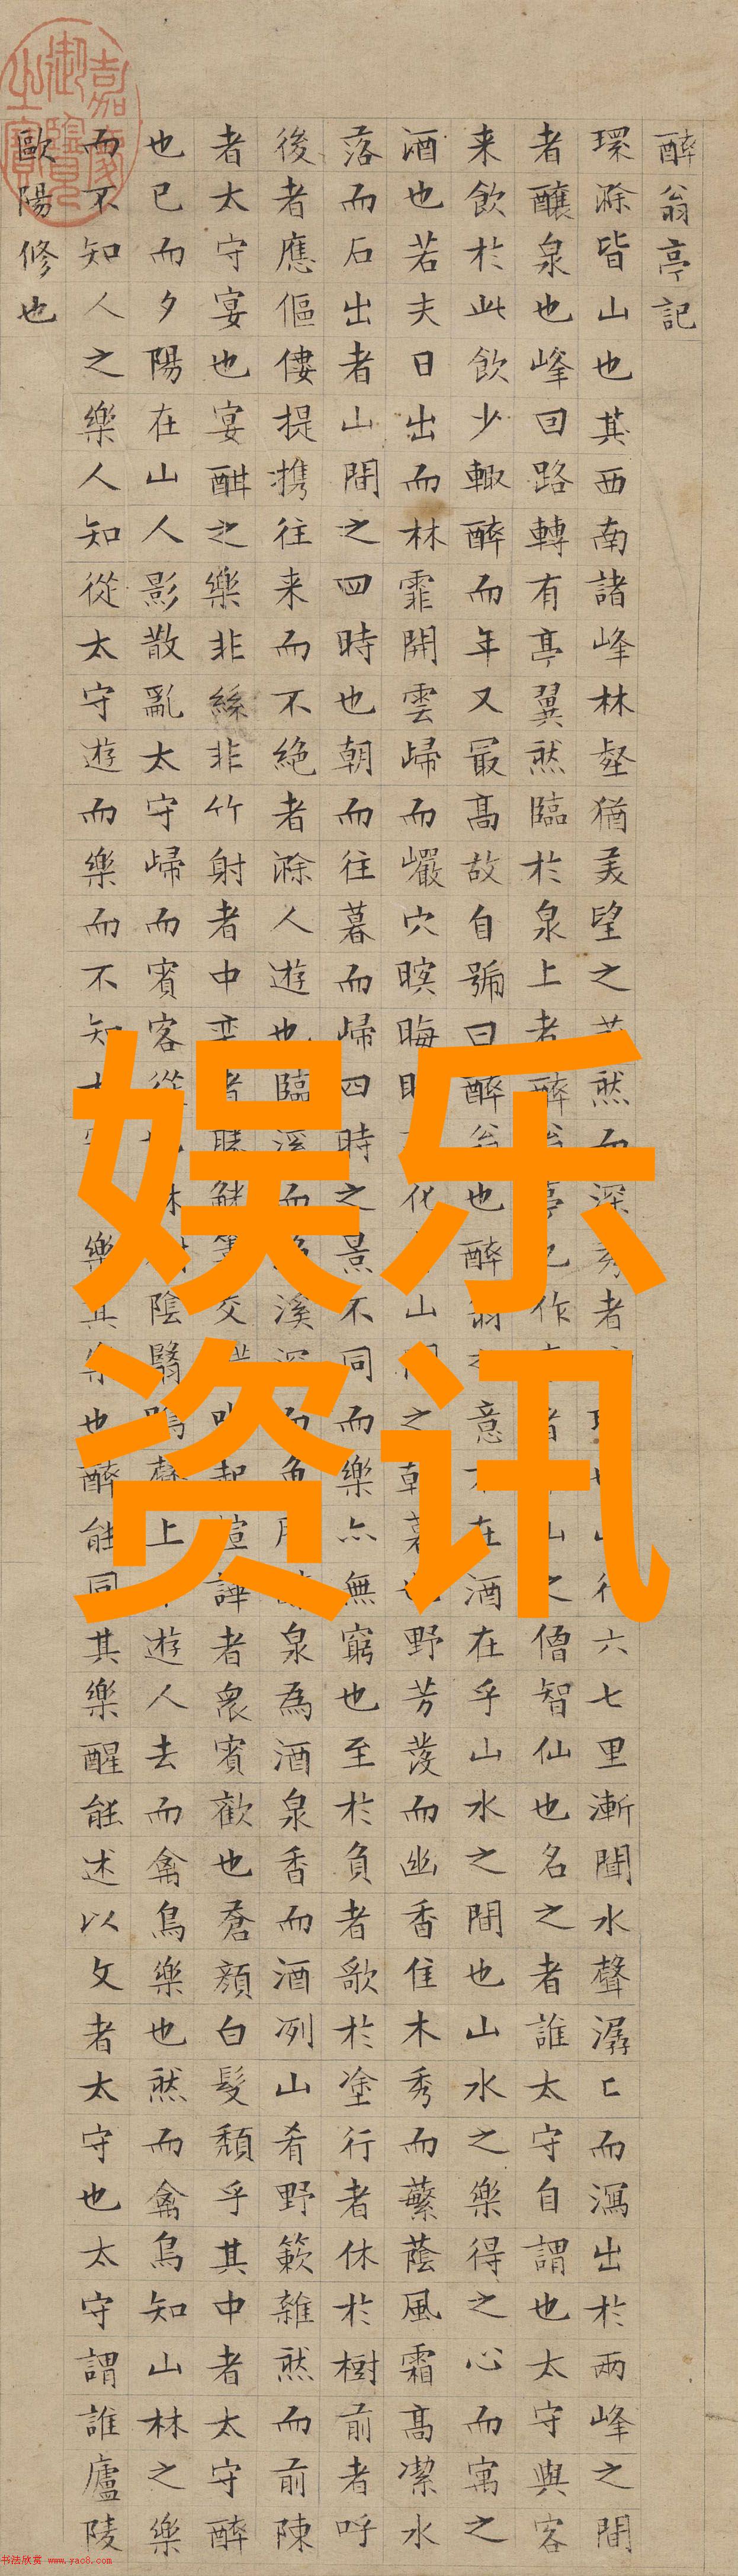 醉翁亭記
環滁皆山也其西南諸峰林壑猶美望之然而深秀者也山行六七里漸聞水聲潺〻而瀉出於兩峰之間
者釀泉也峰回路轉有亭翼然臨於泉上者醉翁亭也作者山之僧智仙也名之者誰太守自謂也太守與客
来飲於此飲少輙醉而年又最高故自號曰醉翁也醉翁意在酒在乎山水之間也山水之樂得之心而寓之
酒也若夫日出而林霏開雲歸而巖穴暝晦明化山間之朝暮也野芳發而幽香佳木秀而蘩蔭風霜高潔水
落而石出者山間之四時也朝而往暮而歸四時之景不同而樂亦無窮也至於負者歌於塗行者休於樹前者呼
後者應傴僂提携往来而不絶者滁人遊也臨溪而漁溪深而魚肥釀泉為酒泉香而酒冽山肴野蔌雜然而前陳
者太守宴也宴酣之樂非絲非竹射者中弈者勝觥籌交起諠譁者衆賓歡也蒼顔白髮頹乎其中者太守醉
也已而夕陽在山人影散亂太守歸而賓客從也林樹陰翳鳴聲上下遊人去而禽鳥樂也然而禽鳥知山林之樂
而不知人之樂人知從太守遊而樂而不知太守樂其樂也醉能同其樂醒能述以文者太守也太守謂誰廬陵
歐陽修也
嘉慶御覽之寶
娱乐
资讯
书法欣赏 www.yac8.com